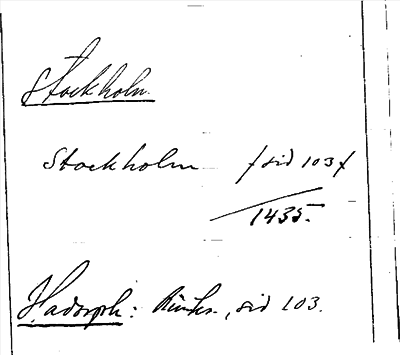 Stockholm.
Stockholm / sid 103 /
1435.
Hadorph: Rimkr., sid 103.